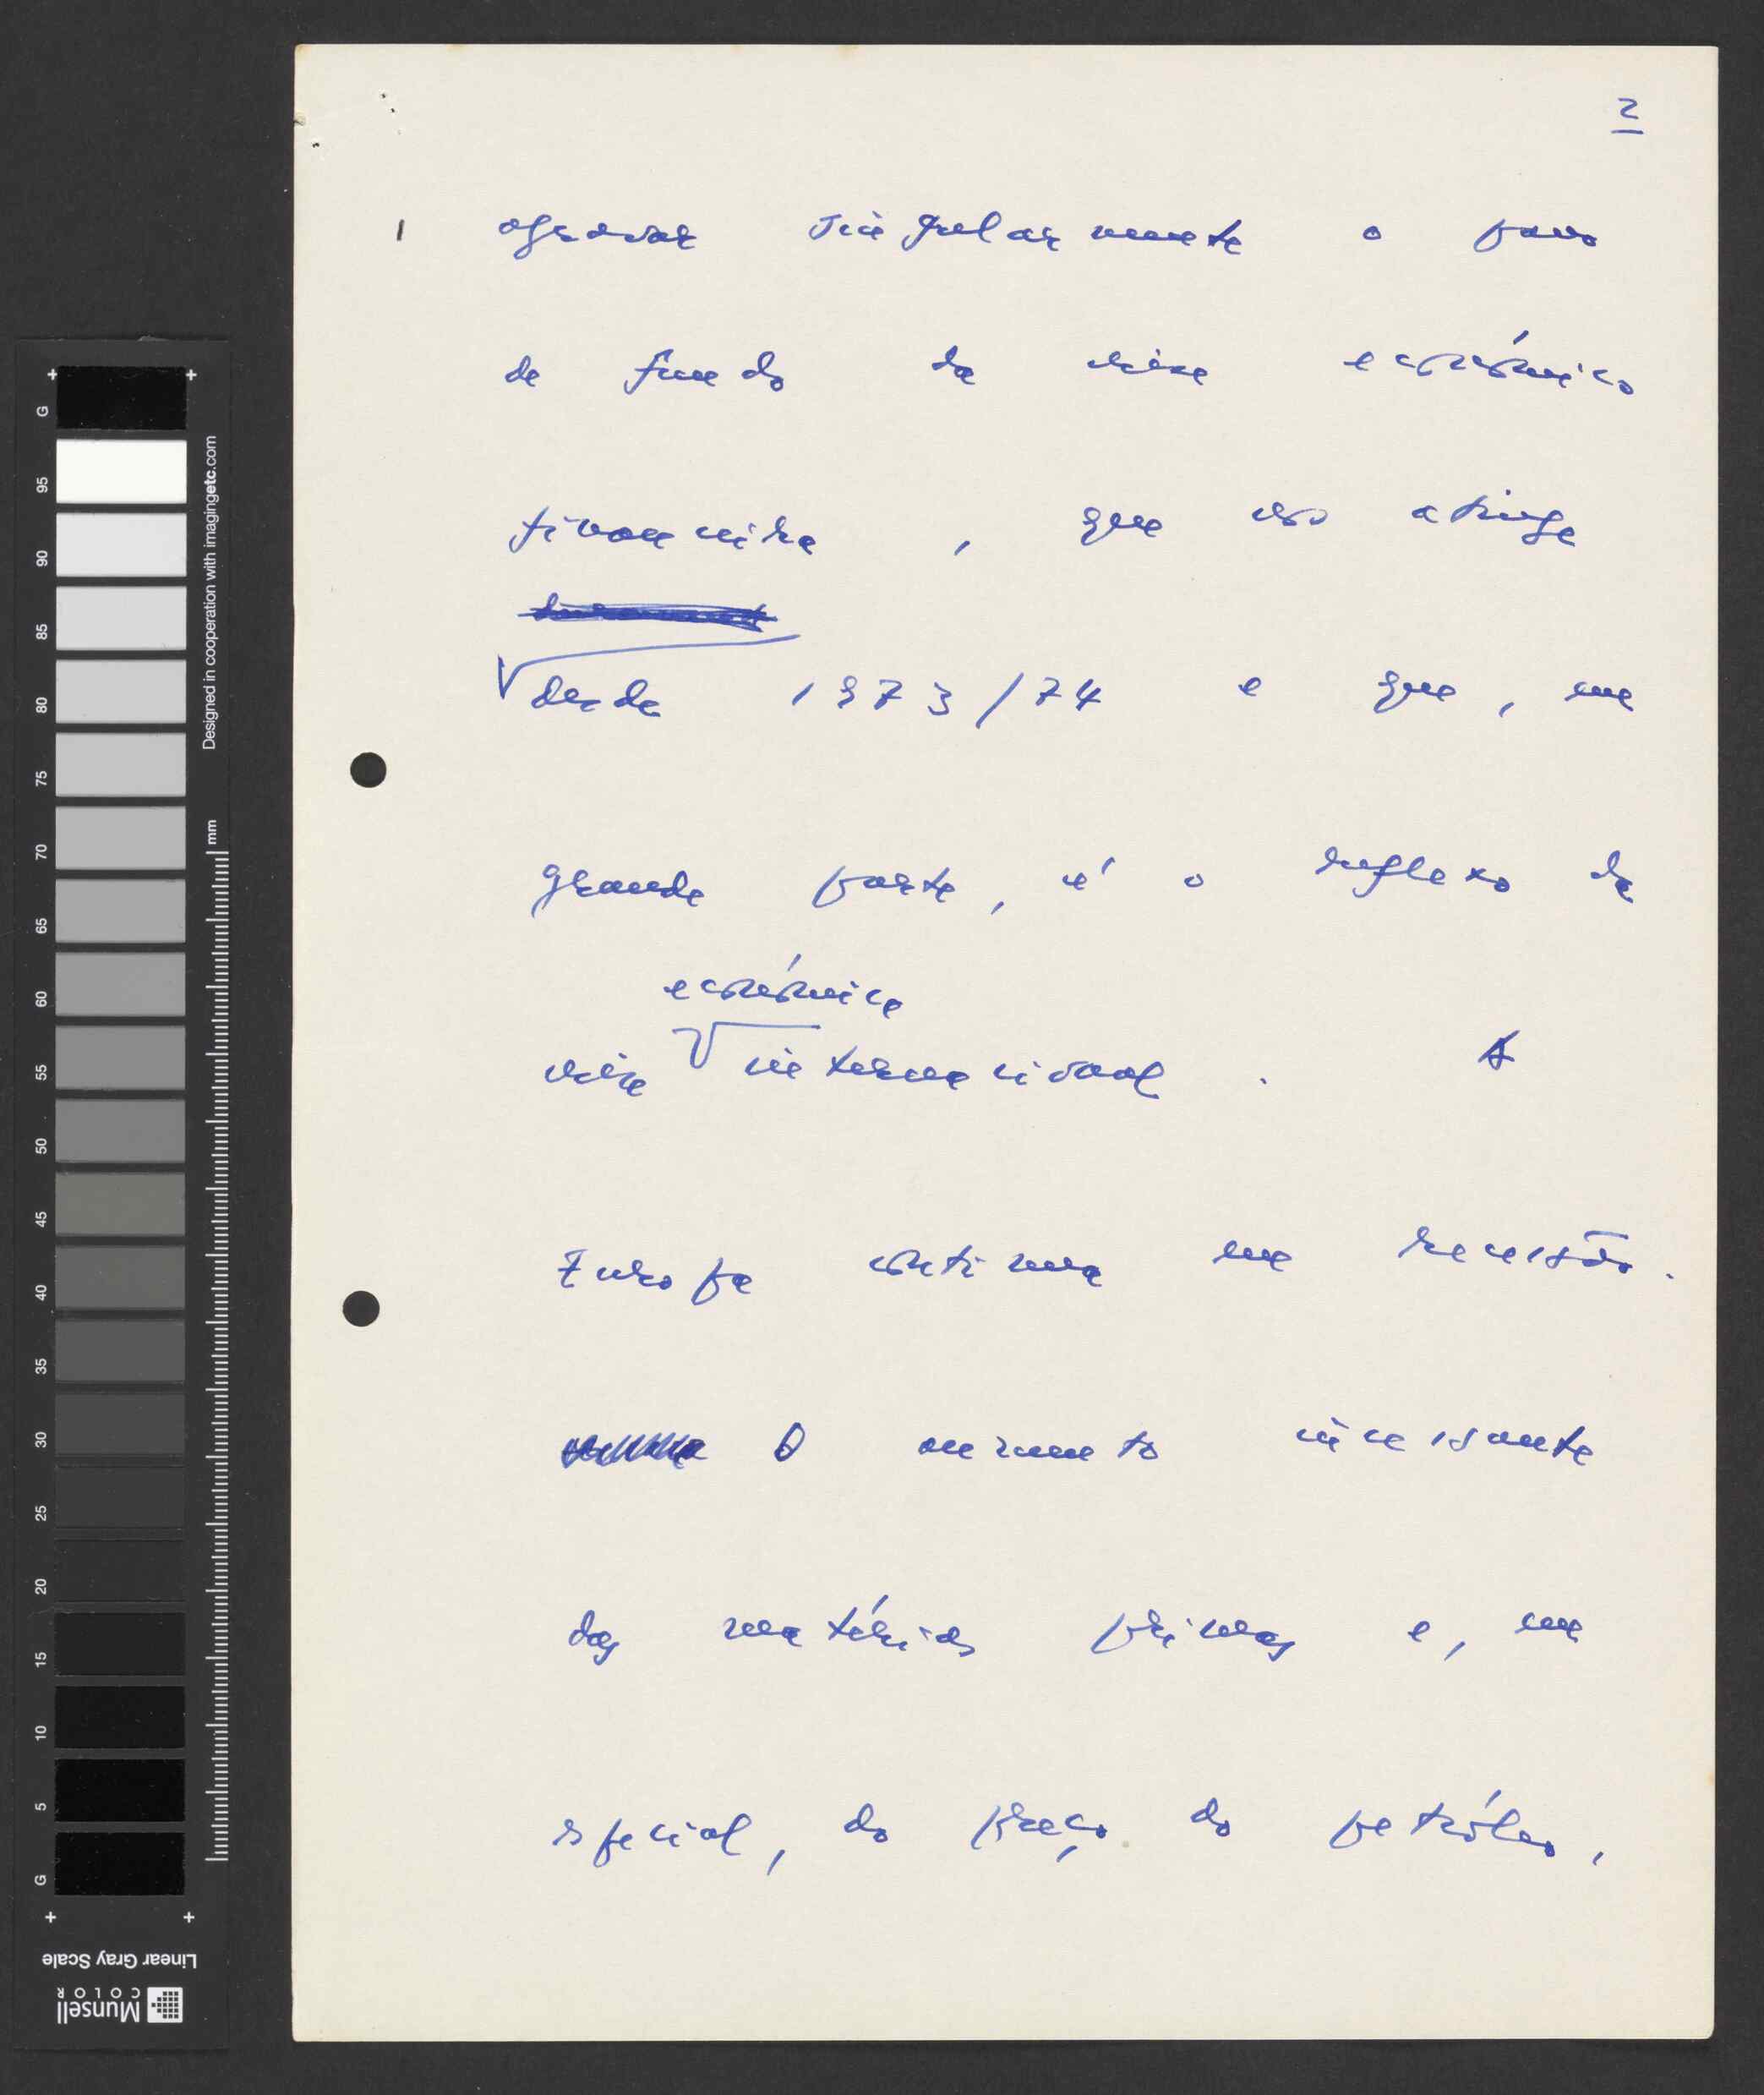 2
agravar singularmente o pano
de fundo da crise económico
financeira, que nos atinge
desde 1973/74 e que, em
grande parte, é o reflexo da
económica
crise internacional. A
Europa continua em recessão.
O aumento incessante
das matérias primas e, em
especial, do preço do petróleo,
Designed in cooperation with imagingetc.com
mm
G 95 90 85 80 75 70 65 60 55 50 45 40 35 30 25 20 15 10 5 G
Linear Gray Scale
Munsell
COLOR